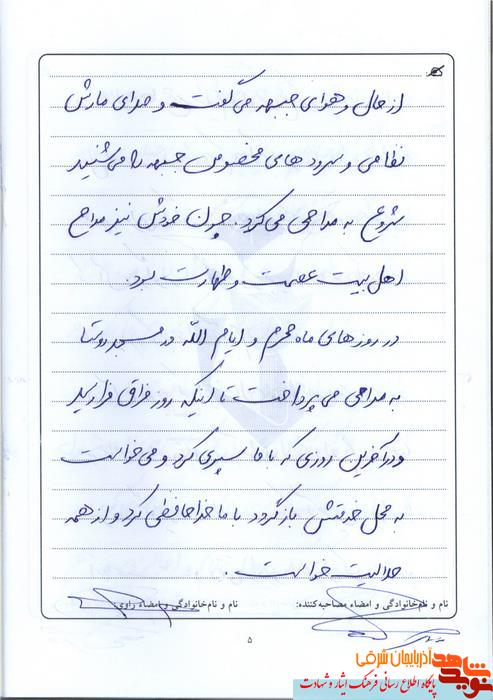 از حال و هوای جبهه می‌گفت و صدای مارش
نظامی و سرودهای مخصوص جبهه را می‌شنید
شروع به مداحی می‌کرد. چون خودش نیز مداح
اهل بیت عصمت و طهارت بود.
در روزهای ماه محرم و ایام الله در مسجد روستا
به مداحی می‌پرداخت تا اینکه روز فراق فرا رسید
و در آخرین روزی که با ما سپری کرد و می‌خواست
به محل خدمتش بازگردد با ما خداحافظی کرد و از همه
حلالیت خواست.
نام و نام‌خانوادگی و امضاء مصاحبه‌کننده: نام و نام‌خانوادگی و امضاء راوی:
۵
نوید شاهد آذربایجان شرقی
پایگاه اطلاع رسانی فرهنگ ایثار و شهادت